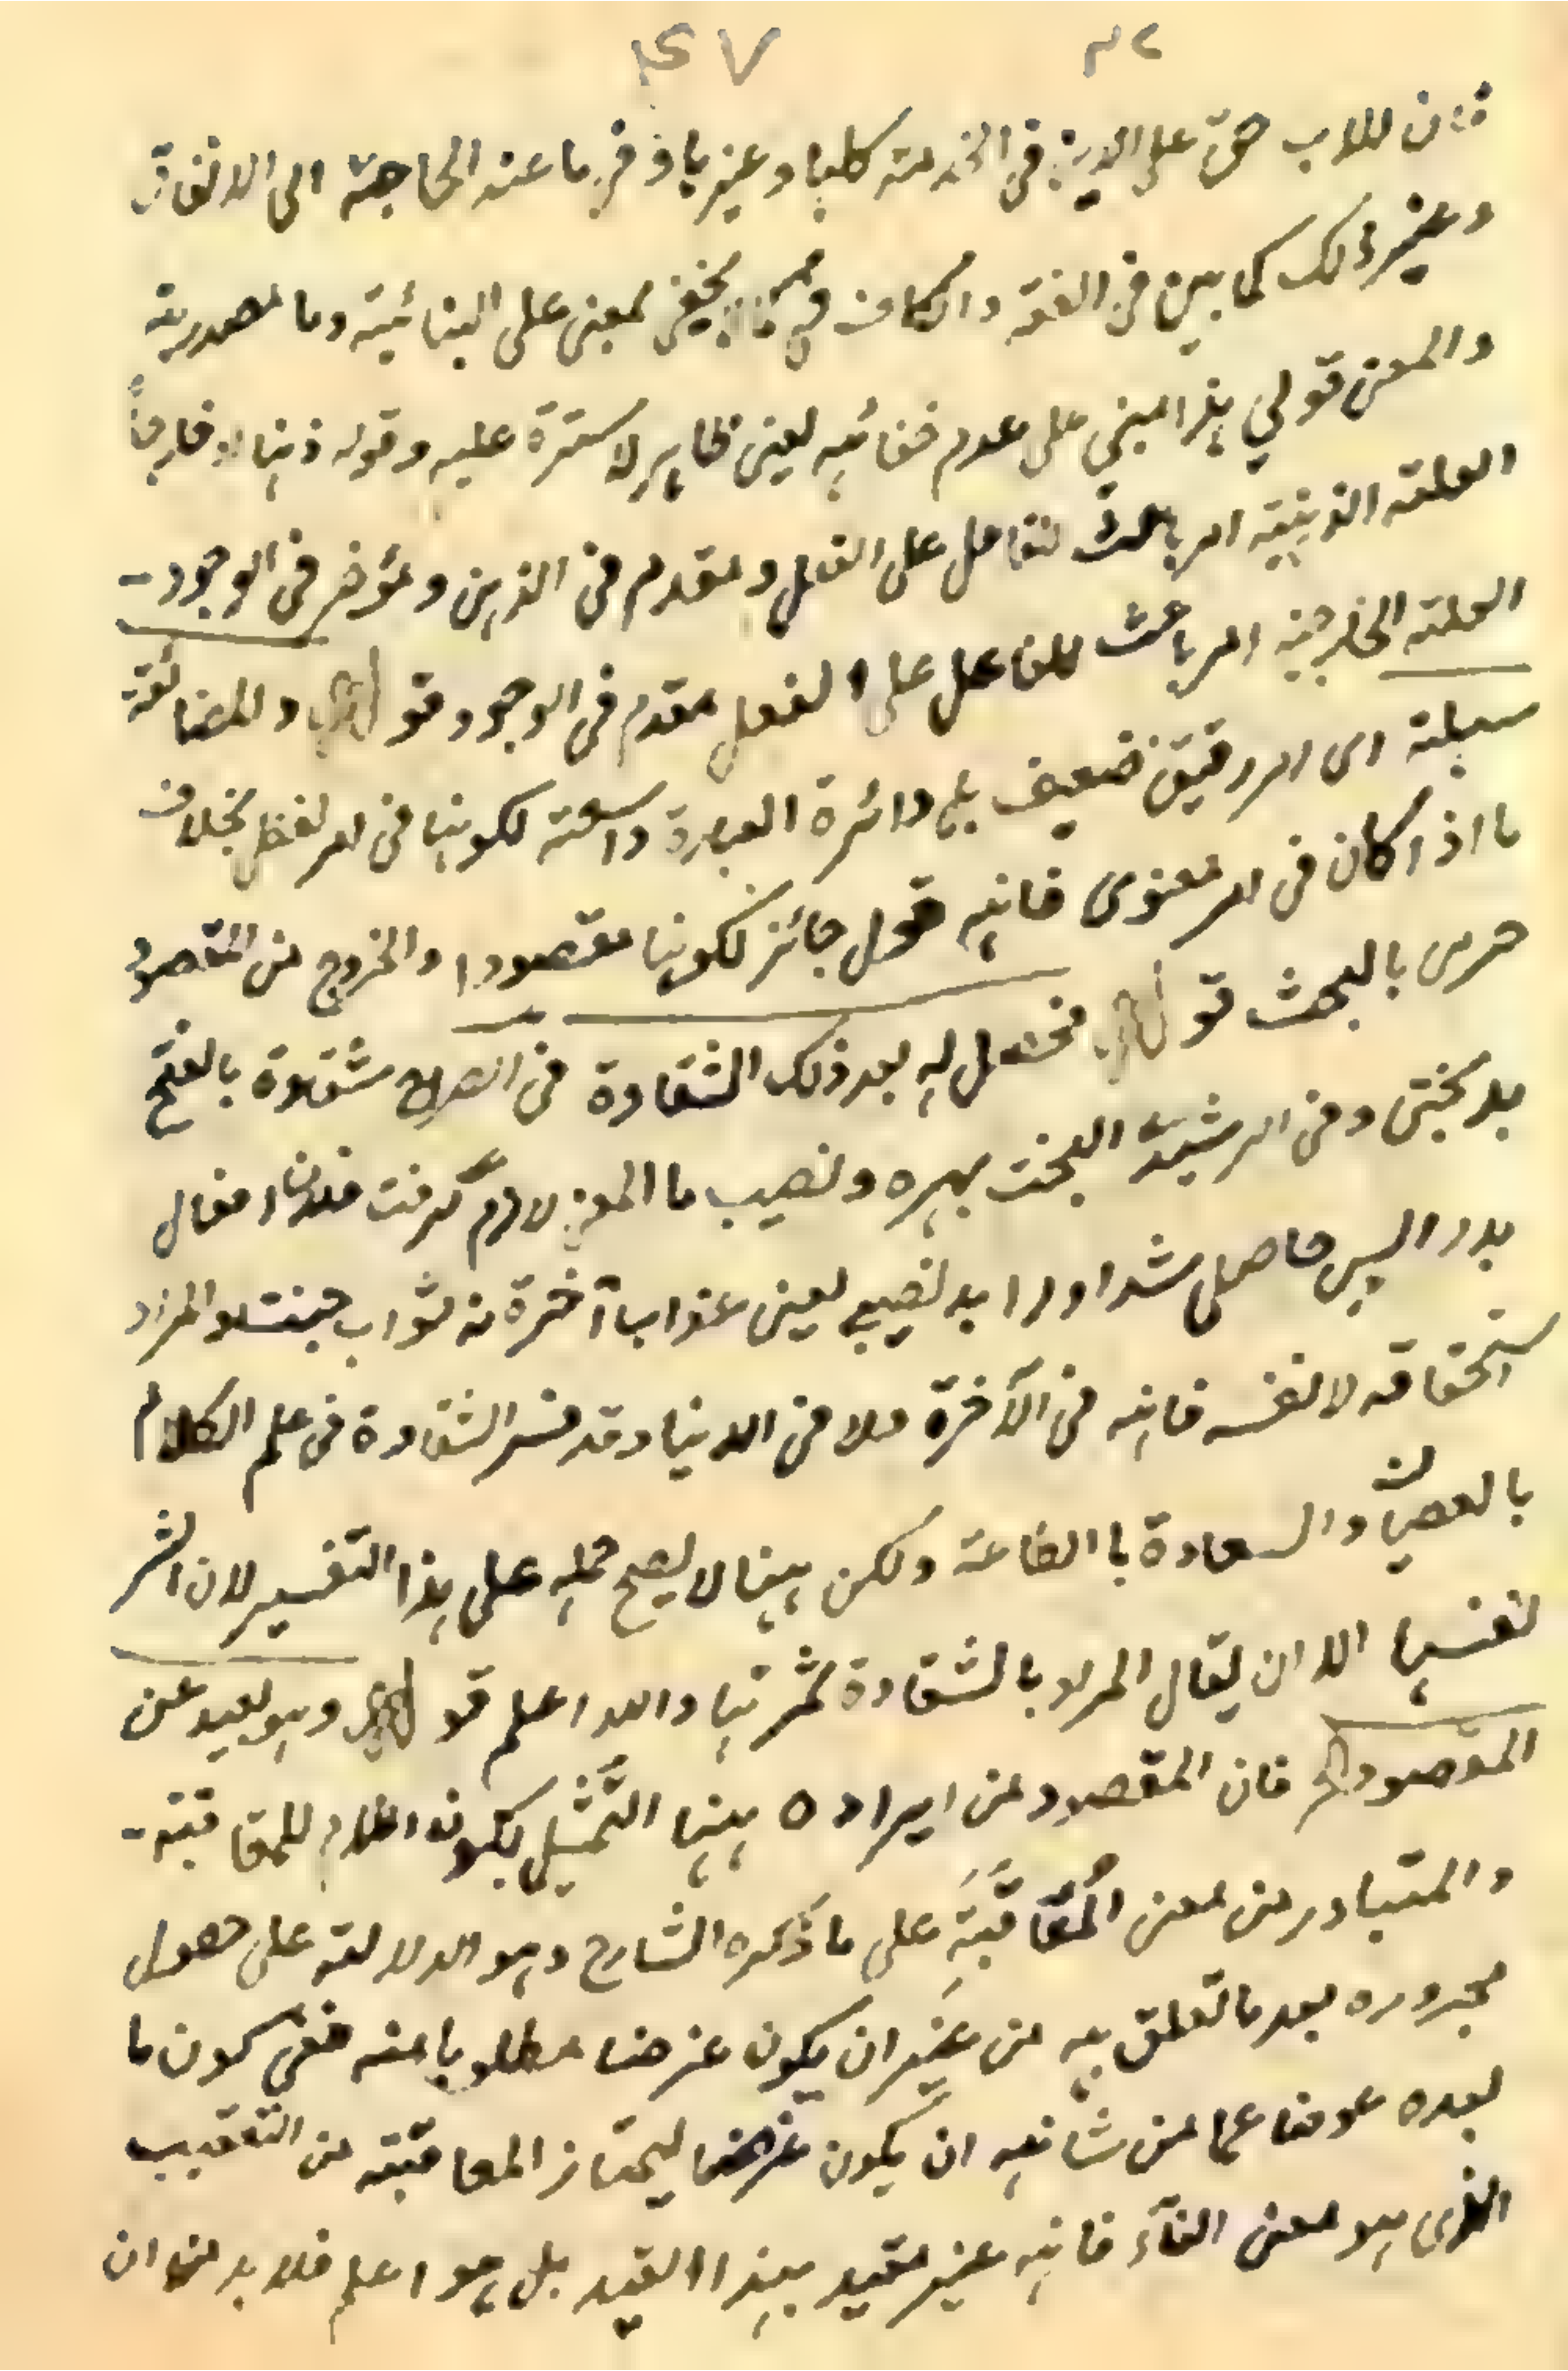 ٤٧ ٣٢
فان للاب حق على الابن في الخدمة كلها وغيرها وفي ما عند الحاجة الى الانفاق
وغير ذلك كما بين في الفقه والكاف في كما يخفى لمعنى على البنائية وما مصدرية
والمعنى قولي هذا مبني على عدم خفائه يعنى ظاهر لا سترة عليه وقوله ذهنا او خارجاً
العلة الذهنية امر باعث لفاعل على الفعل ومقدم في الذهن ومؤخر في الوجود -
العلة الخارجية امر باعث للفاعل على الفعل مقدم في الوجود قوله وللمضائقة
سهلة اى امر رقيق ضعيف بل دائرة العبارة واسعة لكونها في امر لفظى بخلاف
ما اذا كان في امر معنوى فانه قول جائز لكونها مقصودا والخروج من المقصود
حرى بالبحث قوله فحصل له بعد ذلك الشقاوة في الصراح شقاوة بالفتح
بدبختى وفى الرشيدى البخت بهره ونصيب ما المعنى لازم گرفت فلان افعال
بد را پس حاصل شد او را بد نصيبى يعنى عذاب آخرة نه ثواب جنت والمراد
استحقاقه لا نفسه فانه في الآخرة لا في الدنيا وقد فسر الشقاوة في علم الكلام
بالعصيان والسعادة با الطاعة ولكن ههنا لا يصح حمله على هذا التفسير لان الشر
نفسها الا ان يقال المراد بالشقاوة ثمرتها والله اعلم قوله وهو بعيد عن
المقصود فان المقصود من ايراده ههنا التمثيل بكون اللام للمعاقبة -
والمتبادر من معنى المُعَاقَبَةِ على ما ذكره الشارح وهو الدلالة على حصول
مجروره بعد ما تعلق به من غير ان يكون غرضا مطلوبا منه ففي كون ما
بعده عوضا عما من شانه ان يكون غرضا ليمتاز المعاقبة من التعقيب
الذى هو معنى الفاء فانه غير مقيد بهذا القيد بل هو اعلم فلا بد من ان